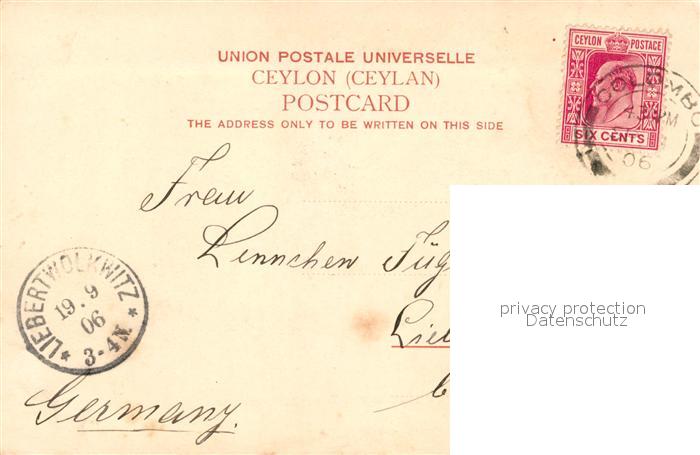 UNION POSTALE UNIVERSELLE
CEYLON (CEYLAN)
POSTCARD
THE ADDRESS ONLY TO BE WRITTEN ON THIS SIDE
CEYLON POSTAGE
SIX CENTS
COLOMBO
PM
06
Frau
Lennchen Füg
Lie
Germany.
LIEBERTWOLKWITZ
19.9
06
3-4N.
privacy protection
Datenschutz